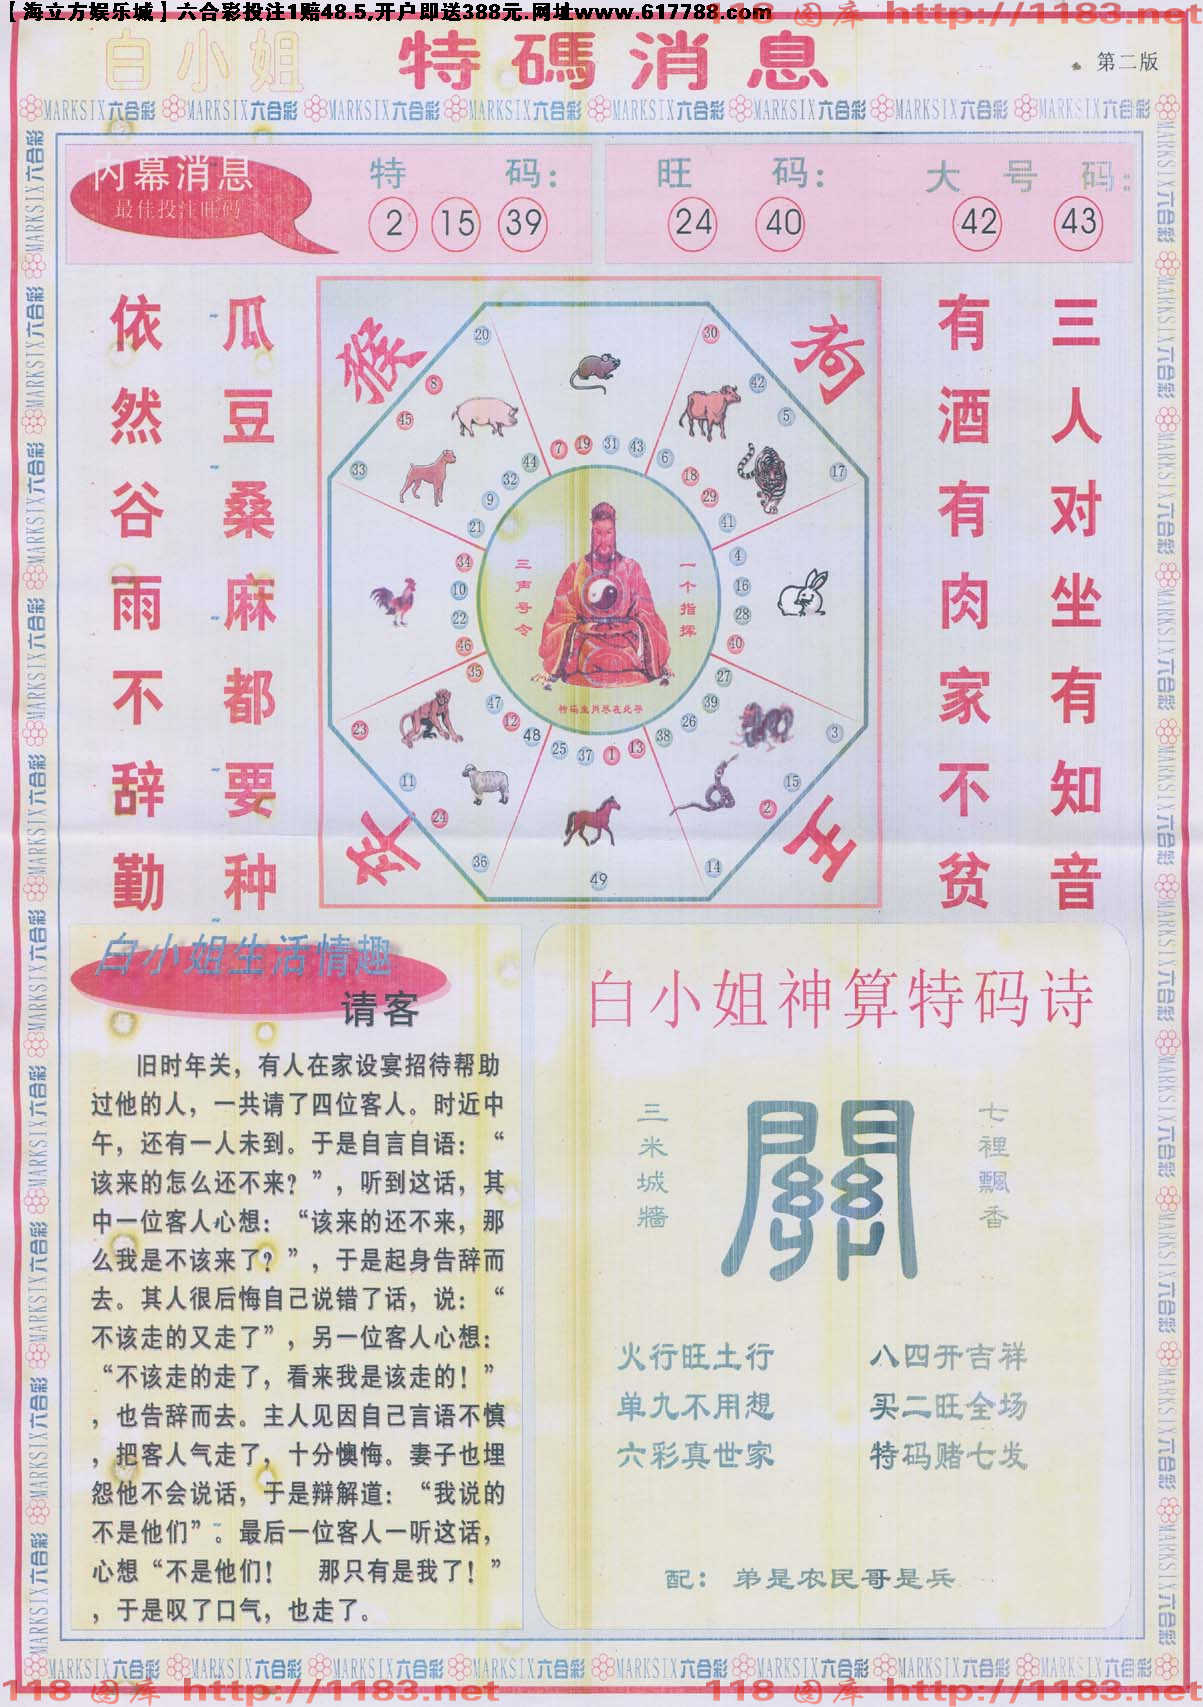 【海立方娱乐城】六合彩投注1赔48.5,开户即送388元.网址www.617788.com
118 图库 http://1183.net
白小姐 特碼消息
第二版
MARKSIX六合彩 MARKSIX六合彩 MARKSIX六合彩 MARKSIX六合彩 MARKSIX六合彩 MARKSIX六合彩 MARKSIX六合彩 MARKSIX六合彩
内幕消息
最佳投注旺码
特 码:
2 15 39
旺 码:
24 40
大 号 码:
42 43
三人对坐有知音
有酒有肉家不贫
瓜豆桑麻都要种
依然谷雨不辞勤
猴
奇
张
王
20 30
8 42
45 5
33 17
44 7 19 31 43 6
32 18
9 29
21 41
34 4
10 16
22 28
46 40
35 27
47 39
12 26
48 38
25 37 1 13
23 3
11 15
24 2
36 14
49
一个指挥
三声号令
特码生肖尽在此寻
白小姐生活情趣
请客
旧时年关，有人在家设宴招待帮助
过他的人，一共请了四位客人。时近中
午，还有一人未到。于是自言自语：“
该来的怎么还不来？”，听到这话，其
中一位客人心想：“该来的还不来，那
么我是不该来了？”，于是起身告辞而
去。其人很后悔自己说错了话，说：“
不该走的又走了”，另一位客人心想：
“不该走的走了，看来我是该走的！”
，也告辞而去。主人见因自己言语不慎
，把客人气走了，十分懊悔。妻子也埋
怨他不会说话，于是辩解道：“我说的
不是他们”。最后一位客人一听这话，
心想“不是他们！ 那只有是我了！”
，于是叹了口气，也走了。
白小姐神算特码诗
七裡飄香
關
三米城牆
火行旺土行 八四开吉祥
单九不用想 买二旺全场
六彩真世家 特码赌七发
配：弟是农民哥是兵
MARKSIX六合彩 MARKSIX六合彩 MARKSIX六合彩 MARKSIX六合彩 MARKSIX六合彩 MARKSIX六合彩 MARKSIX六合彩 MARKSIX六合彩
118 图库 http://1183.net 118 图库 http://1183.net